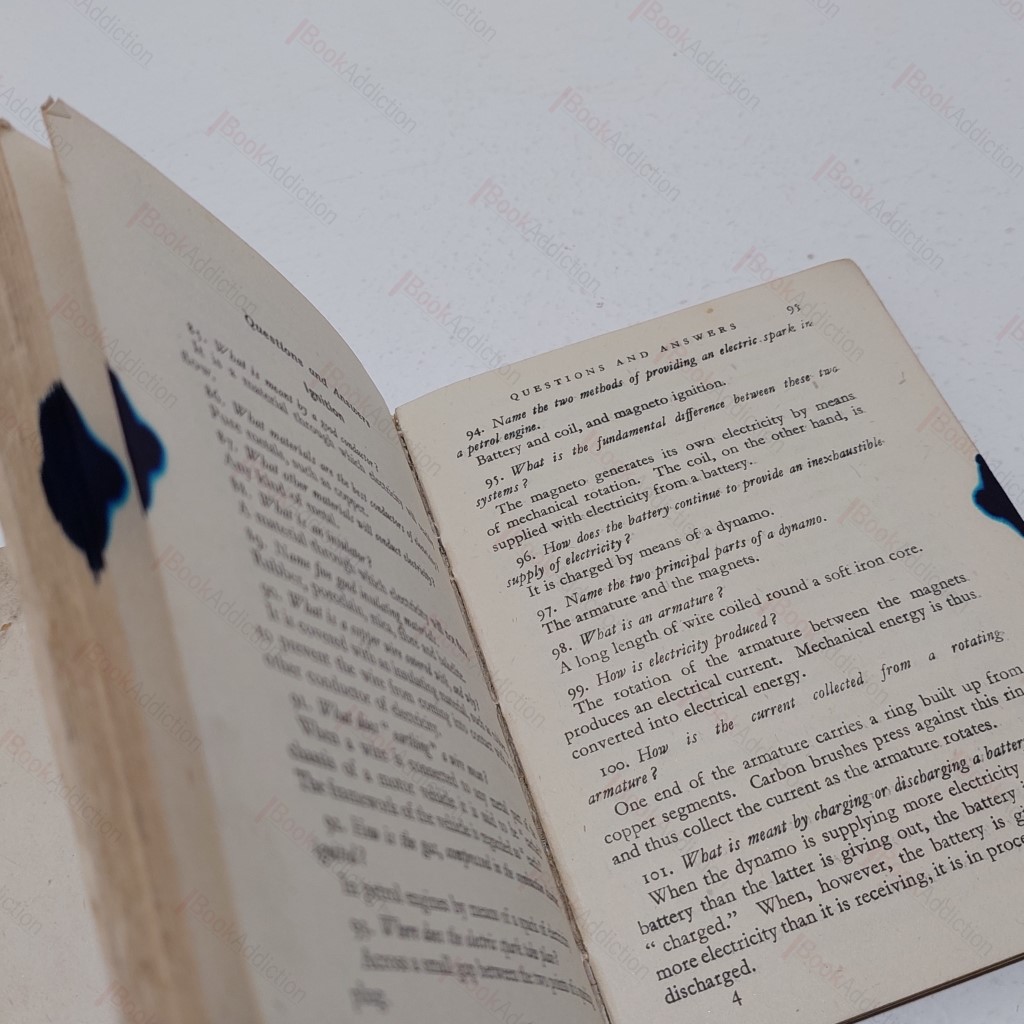 Questions and Answers
Ignition
85. What is meant by a good conductor?
It is a material through which electricity
flow.
86. What materials are the best conductors of
Pure metals, such as copper.
87. What other materials will conduct electricity?
Any kind of metal.
88. What is an insulator?
A material through which electricity will
89. Name five good insulating materials.
Rubber, porcelain, mica, fibre and
90. What is a copper wire covered with, and why?
It is covered with an insulating material, such as
to prevent the wire from coming into contact with
other conductor of electricity.
91. What does "earthing" a wire mean?
When a wire is connected to any metal part of
chassis of a motor vehicle it is said to be
The framework of the vehicle is regarded as
92. How is the gas, compressed in the combustion
ignited?
In petrol engines by means of a spark of
93. Where does the electric spark take place?
Across a small gap between the two points of
plug.
QUESTIONS AND ANSWERS 91
94. Name the two methods of providing an electric spark in
a petrol engine.
Battery and coil, and magneto ignition.
95. What is the fundamental difference between these two
systems?
The magneto generates its own electricity by means
of mechanical rotation. The coil, on the other hand, is
supplied with electricity from a battery.
96. How does the battery continue to provide an inexhaustible
supply of electricity?
It is charged by means of a dynamo.
97. Name the two principal parts of a dynamo.
The armature and the magnets.
98. What is an armature?
A long length of wire coiled round a soft iron core.
99. How is electricity produced?
The rotation of the armature between the magnets
produces an electrical current. Mechanical energy is thus
converted into electrical energy.
100. How is the current collected from a rotating
armature?
One end of the armature carries a ring built up from
copper segments. Carbon brushes press against this rin
and thus collect the current as the armature rotates.
101. What is meant by charging or discharging a batter
When the dynamo is supplying more electricity
battery than the latter is giving out, the battery i
“ charged.” When, however, the battery is gi
more electricity than it is receiving, it is in proce
discharged.
4